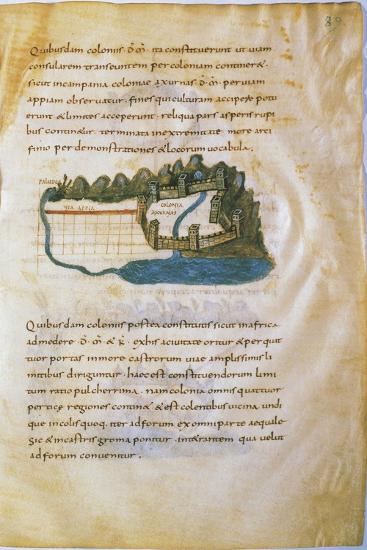 89
Quibusdam coloniis · D̄ · M̄ · ita constituerunt ut viam
consularem transeuntem per coloniam contineret ·
sicut incampania coloniae axurnas · D̄ · M̄ · perviam
appiam observatur · fines qui culturam accipere potu
erunt & limites acceperunt · reliqua pars asperis rupi
bus continetur · terminata in extremitate more arci
finio per demonstrationes & locorum vocabula ·
PALUDES
VIA APPIA
COLONIA
AXURNAS
Quibusdam coloniis postea constitutis sicut in africa
admedere · D̄ · M̄ · & K̄ · exhis a civitate oritur & per quat
tuor portas in morem castrorum viae amplissimis li
mitibus diriguntur · haec est constituendorum limi
tum ratio pulcherrima · nam colonia omnis quattuor
perticae regiones continet & est colentibus vicina undi
que incolis quoq · iter ad forum ex omni parte aequale ·
sic & in castris groma ponitur · in tetrantem qua velut
ad forum conventur ·